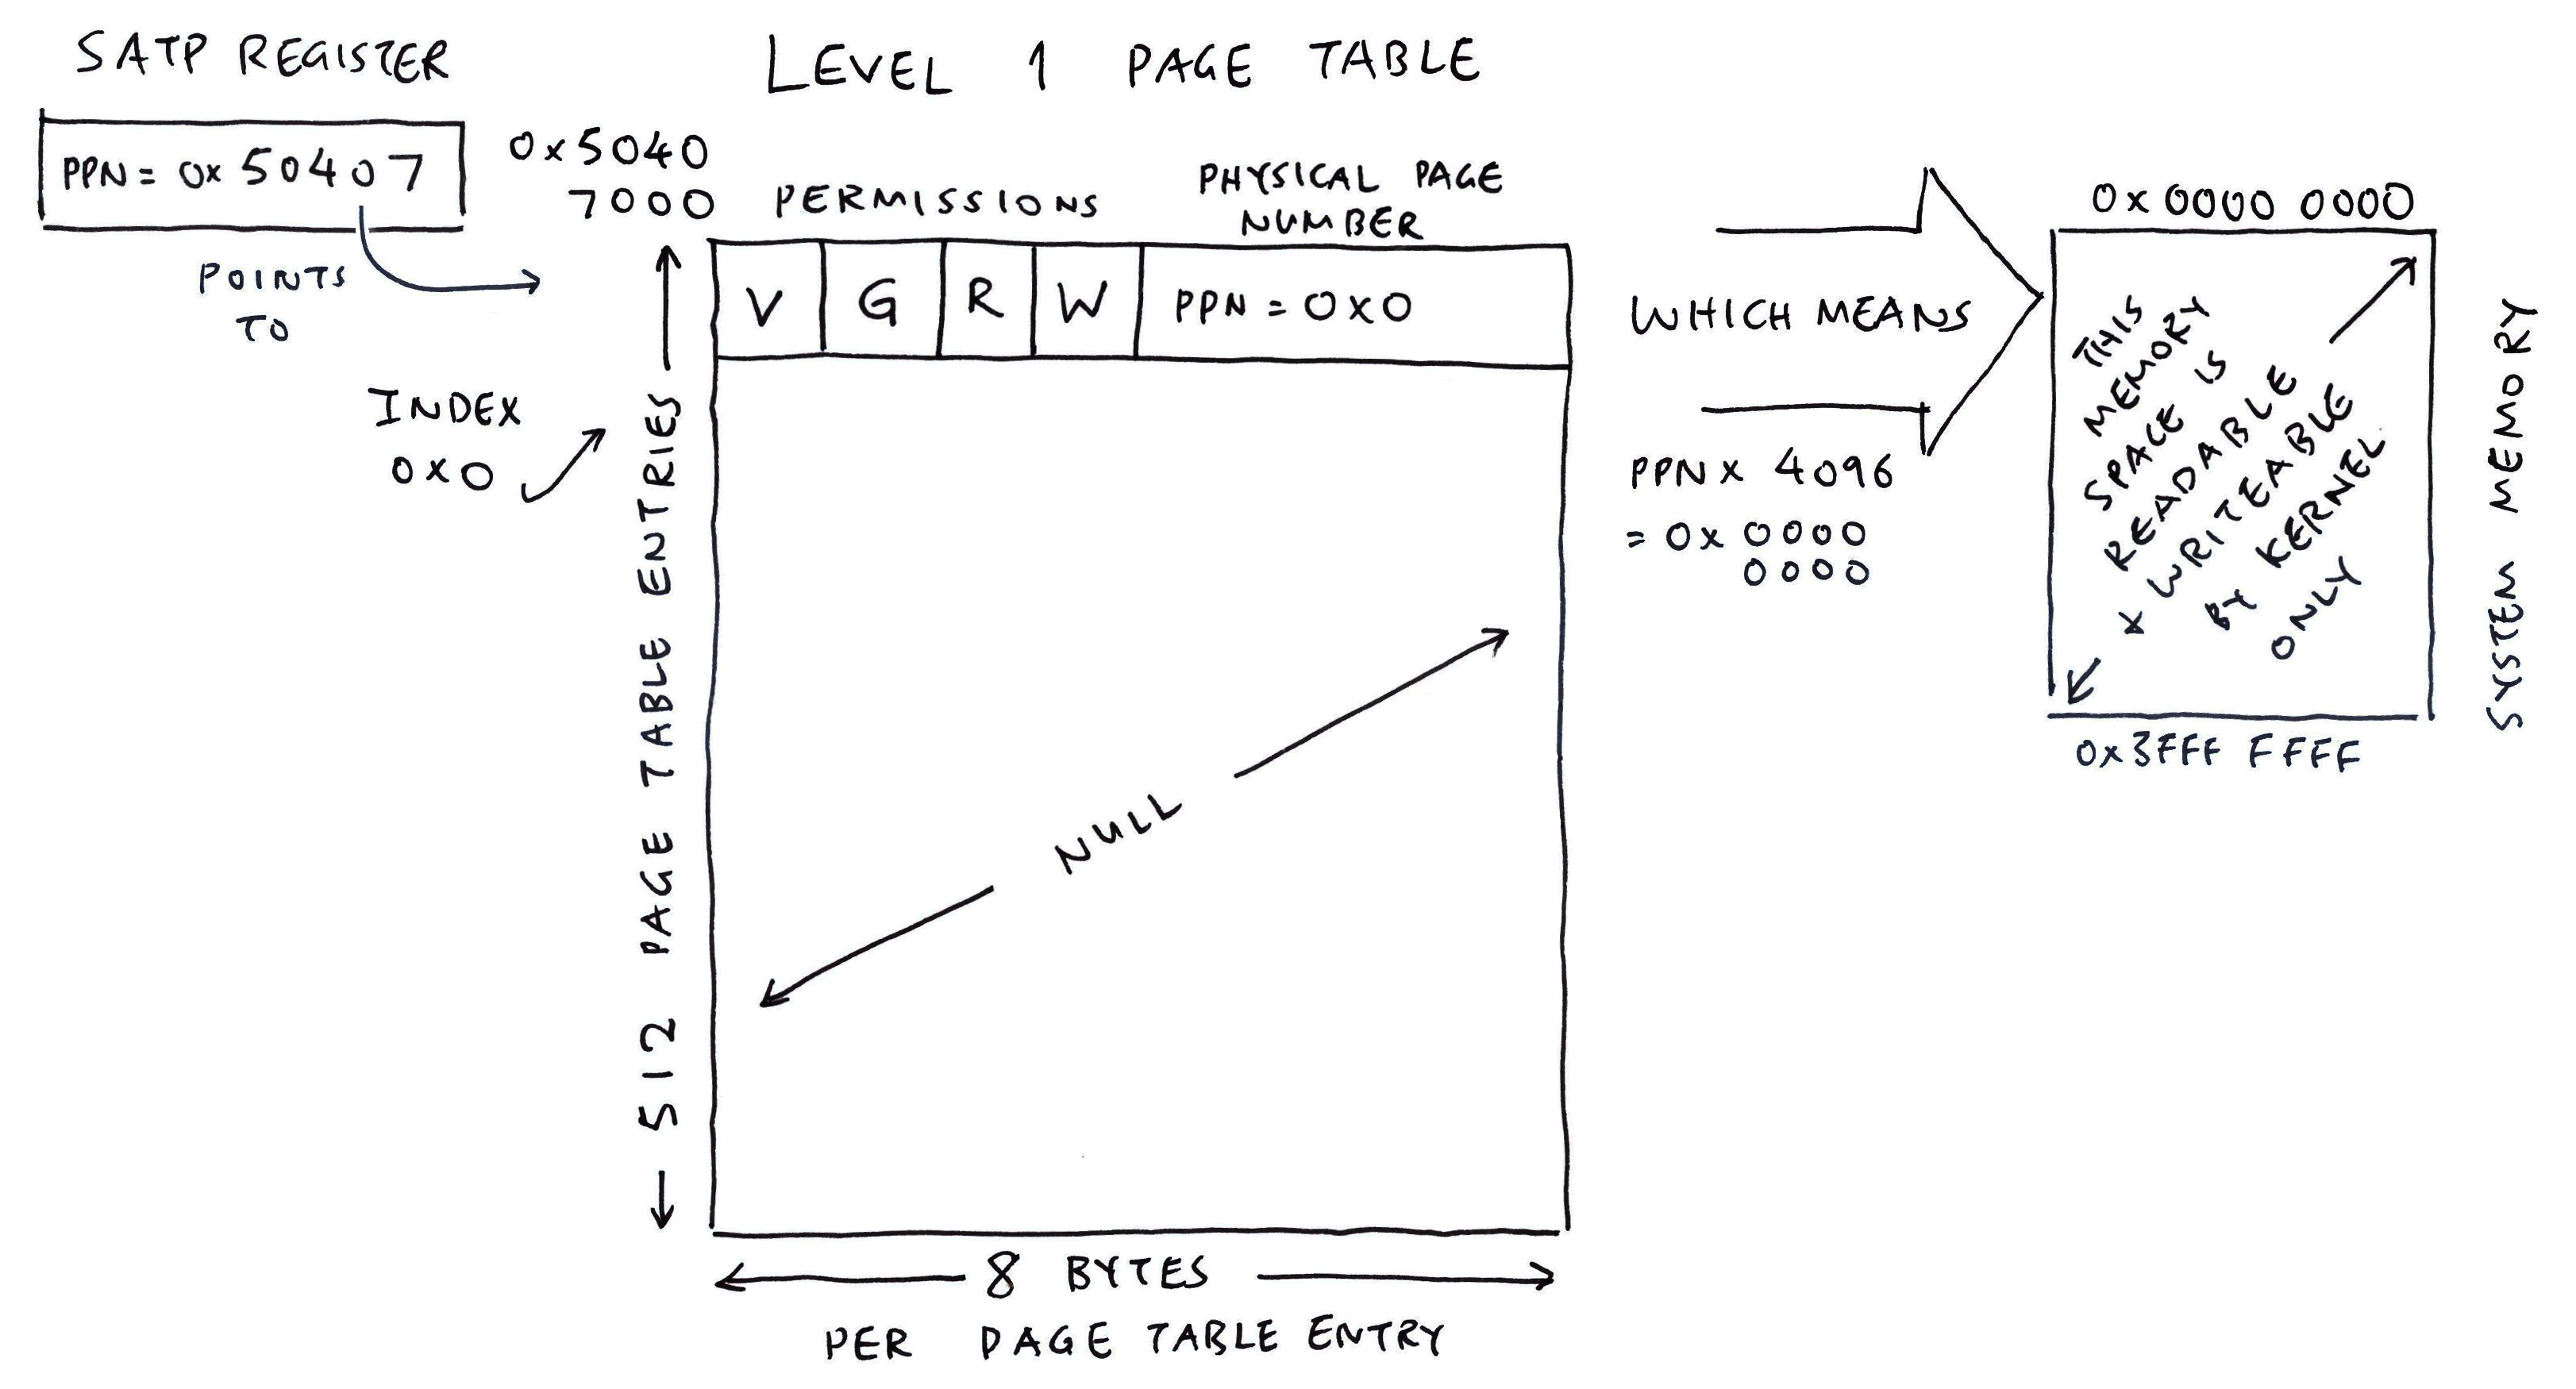 SATP REGISTER
PPN = 0x 50407
POINTS
TO
INDEX
0x0
LEVEL 1 PAGE TABLE
0x5040
7000
PERMISSIONS
PHYSICAL PAGE
NUMBER
V G R W PPN = 0x0
512 PAGE TABLE ENTRIES
NULL
8 BYTES
PER PAGE TABLE ENTRY
WHICH MEANS
PPN x 4096
= 0x 0000
0000
0x 0000 0000
THIS
MEMORY
SPACE IS
READABLE
& WRITEABLE
BY KERNEL
ONLY
0x3FFF FFFF
SYSTEM MEMORY